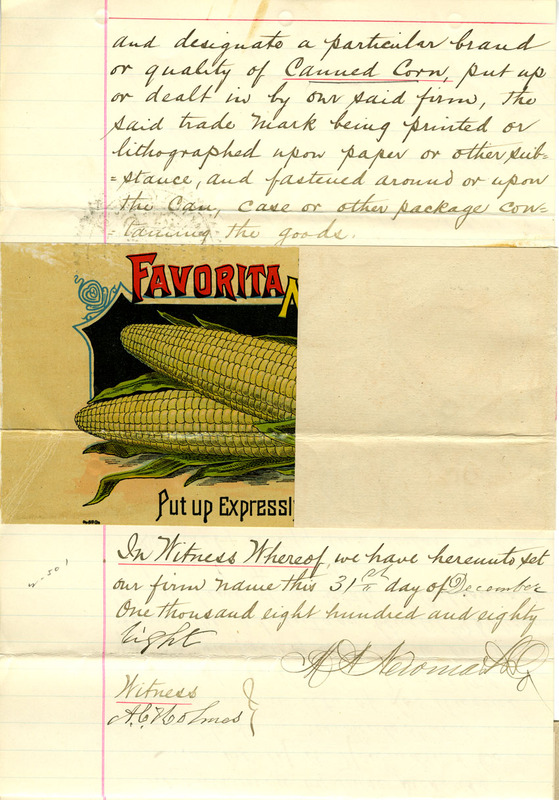 and designate a particular brand
or quality of Canned Corn, put up
or dealt in by our said firm, the
said trade mark being printed or
lithographed upon paper or other sub-
=stance, and fastened around or upon
the Can, case or other package con-
-taining the goods.
FAVORITA
Put up Expressl
In Witness Whereof, we have hereunto set
our firm name this 31st day of December
One thousand eight hundred and eighty
eight
Witness
A.C. Holmes